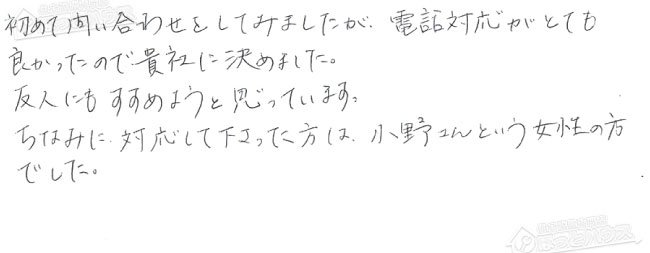 初めて問い合わせをしてみましたが、電話対応がとても
良かったので貴社に決めました。
友人にもすすめようと思っています。
ちなみに、対応して下さった方は、小野さんという女性の方
でした。